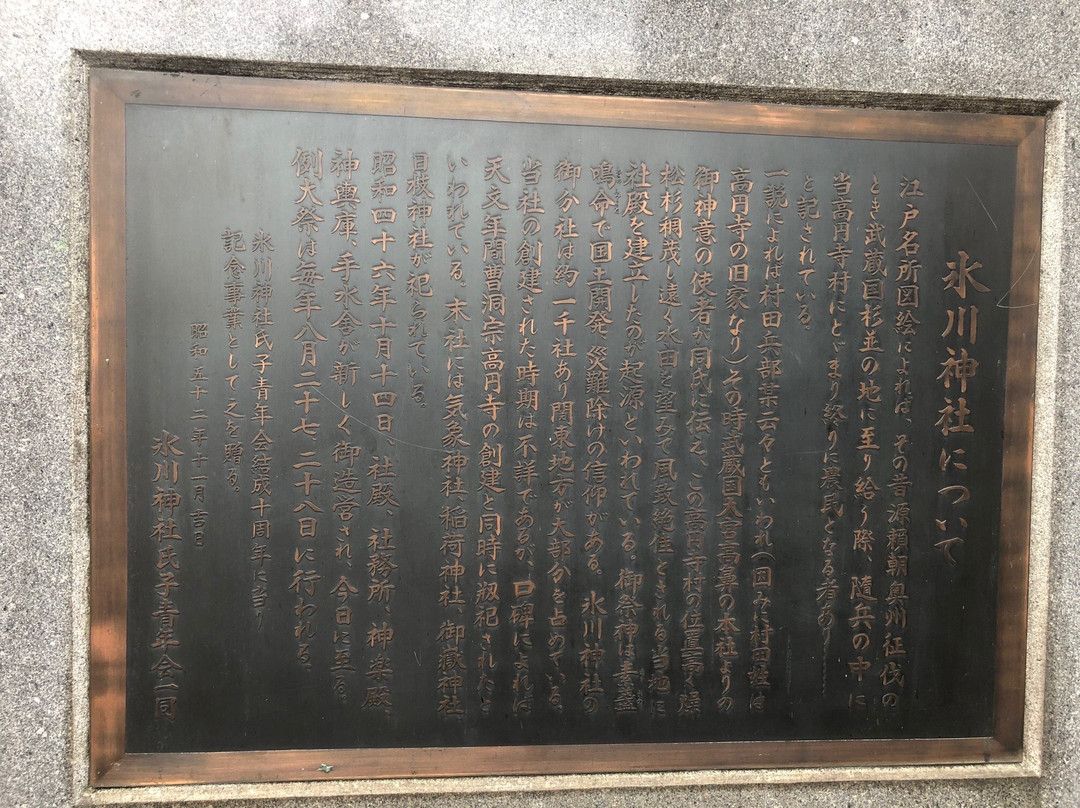 氷川神社について
江戸名所図絵によれば、その昔源頼朝奥州征伐の
とき武蔵国杉並の地に至り給う際、随兵の中に
当高円寺村にとどまり終りに農民となる者あり
と記されている。
一説によれば村田兵部某云々ともいわれ(因みに村田姓は
高円寺の旧家なり)その時武蔵国大宮高鼻の本社よりの
御神意の使者が同氏に伝え、この高円寺村の位置高く燥
松杉桐茂し遠く水田を望みて風致絶佳とされる当地に
社殿を建立したのが起源といわれている。御祭神は素盞
鳴命で国土開発災難除けの信仰がある。氷川神社の
御分社は約一千社あり関東地方が大部分を占めている。
当社の創建された時期は不詳であるが、口碑によれば
天文年間曹洞宗高円寺の創建と同時に祀されたと
いわれている。末社には気象神社、稲荷神社、御嶽神社
目枝神社が祀られている。
昭和四十六年十月十四日、社殿、社務所、神楽殿、
神輿庫、手水舎が新しく御造営され、今日に至る。
例大祭は毎年八月二十七、二十八日に行われる。
氷川神社氏子青年会結成十周年に当り
記念事業として之を贈る。
昭和五十二年十一月吉日
氷川神社氏子青年会一同